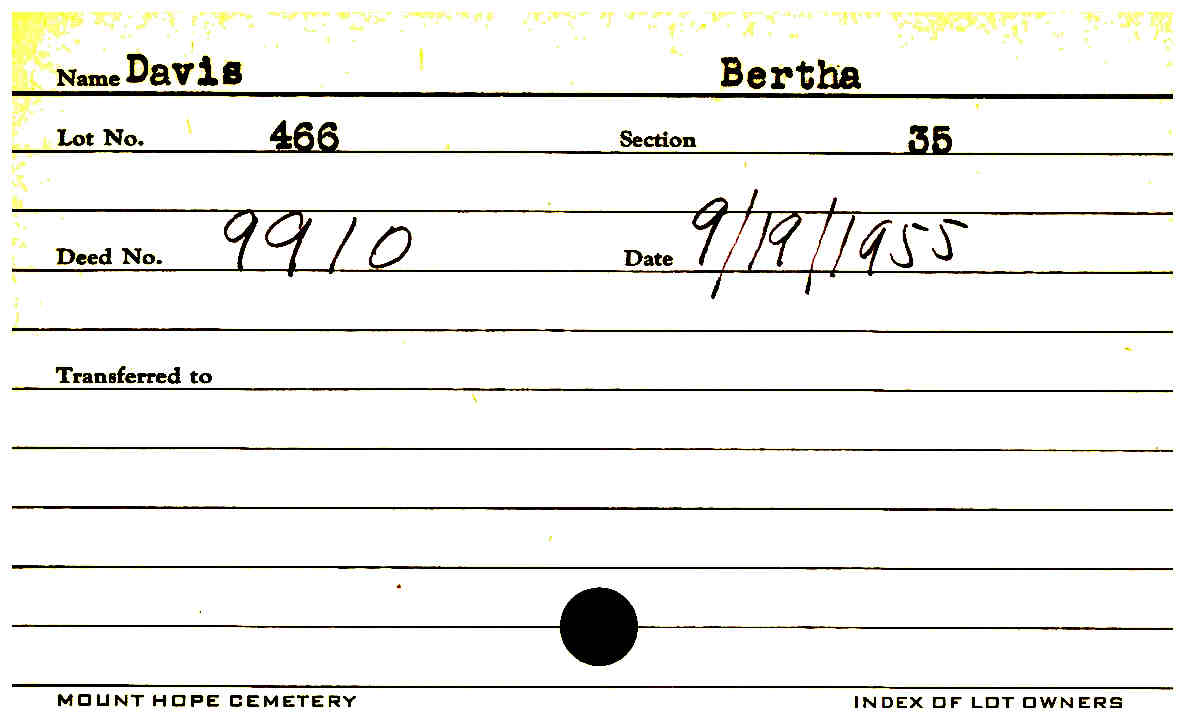 Name Davis Bertha
Lot No. 466 Section 35
Deed No. 9910 Date 9/19/1955
Transferred to
MOUNT HOPE CEMETERY INDEX OF LOT OWNERS